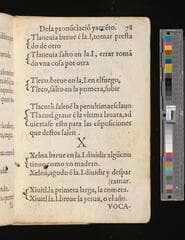 De la pronūciaciō y acēto. 78
Tlaneuia breue ē la.I, tomar presta
do de otro
Tlaneuia salto en la.I, errar tomā
do vna cosa por otra
Tleco, breue en la,I,en el fuego,
Tleco, salto en la primera, subir
Tlacotli, saleō la penultima esclauo
Tlacotl graue ē la vltima lauara, ad
uiertase esto para las cōposiciones
que destos salen.
X
Xeloa, breue en la.I. diuidir algū con
tinuo como vn madero.
Xeloa, agudo ē la.I. diuidir y despar
(ramar.
Xiuitl, la primera larga, la comera.
Xiuitl. la.I. breue la yerua, o el año.
VOCA-